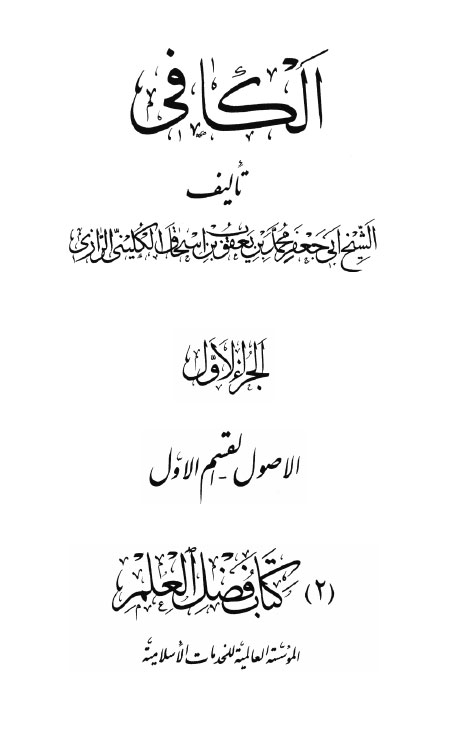 الكافي
تأليف
الشيخ أبي جعفر محمد بن يعقوب بن إسحاق الكليني الرازي
الجزء الأول
الاصول - القسم الاول
(٢) كتاب فضل العلم
المؤسسة العالمية للخدمات الإسلامية